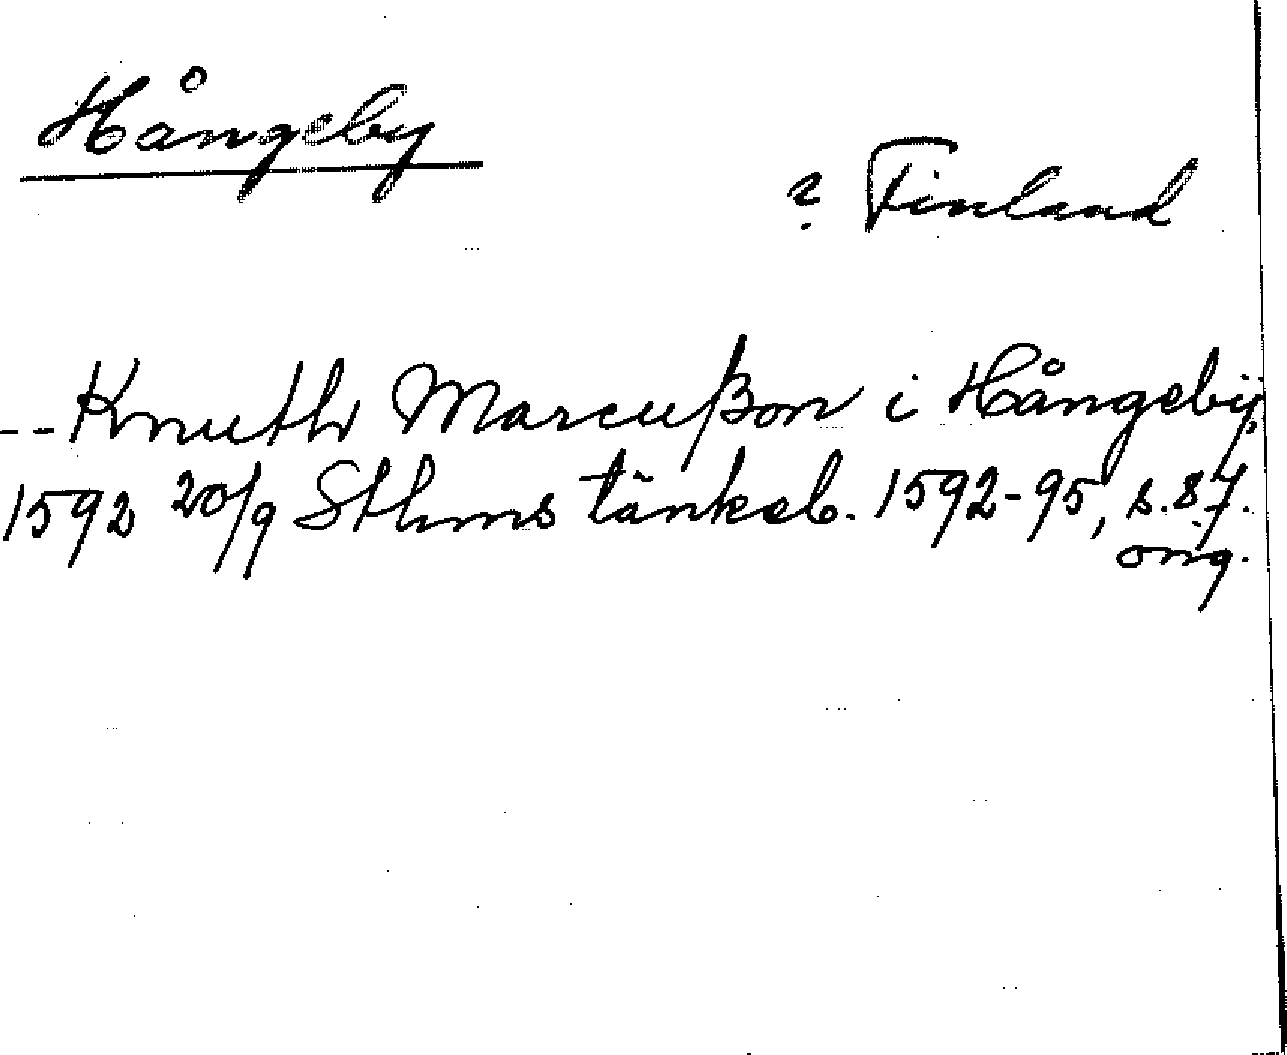 Hångeby
? Finland
-- Knuth Marcußon i Hångebÿ,
1592 20/9 Sthms tänkeb. 1592-95, s. 87.
orig.